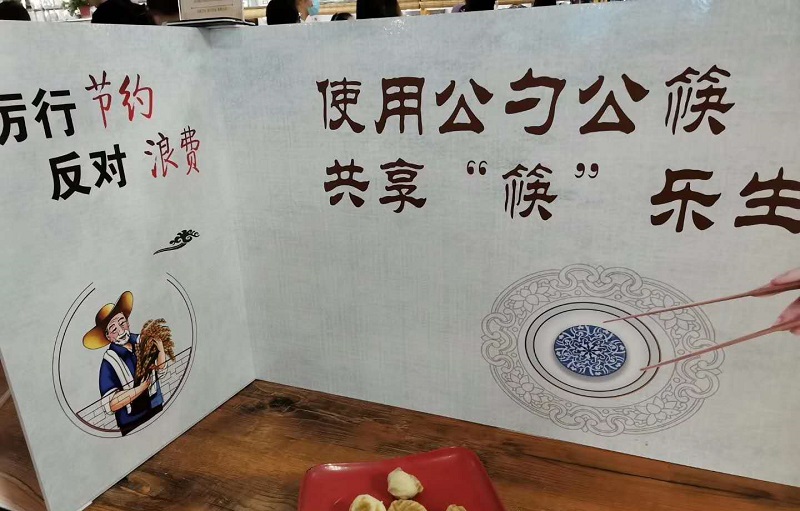 厉行节约
反对浪费
使用公勺公筷
共享“筷”乐生